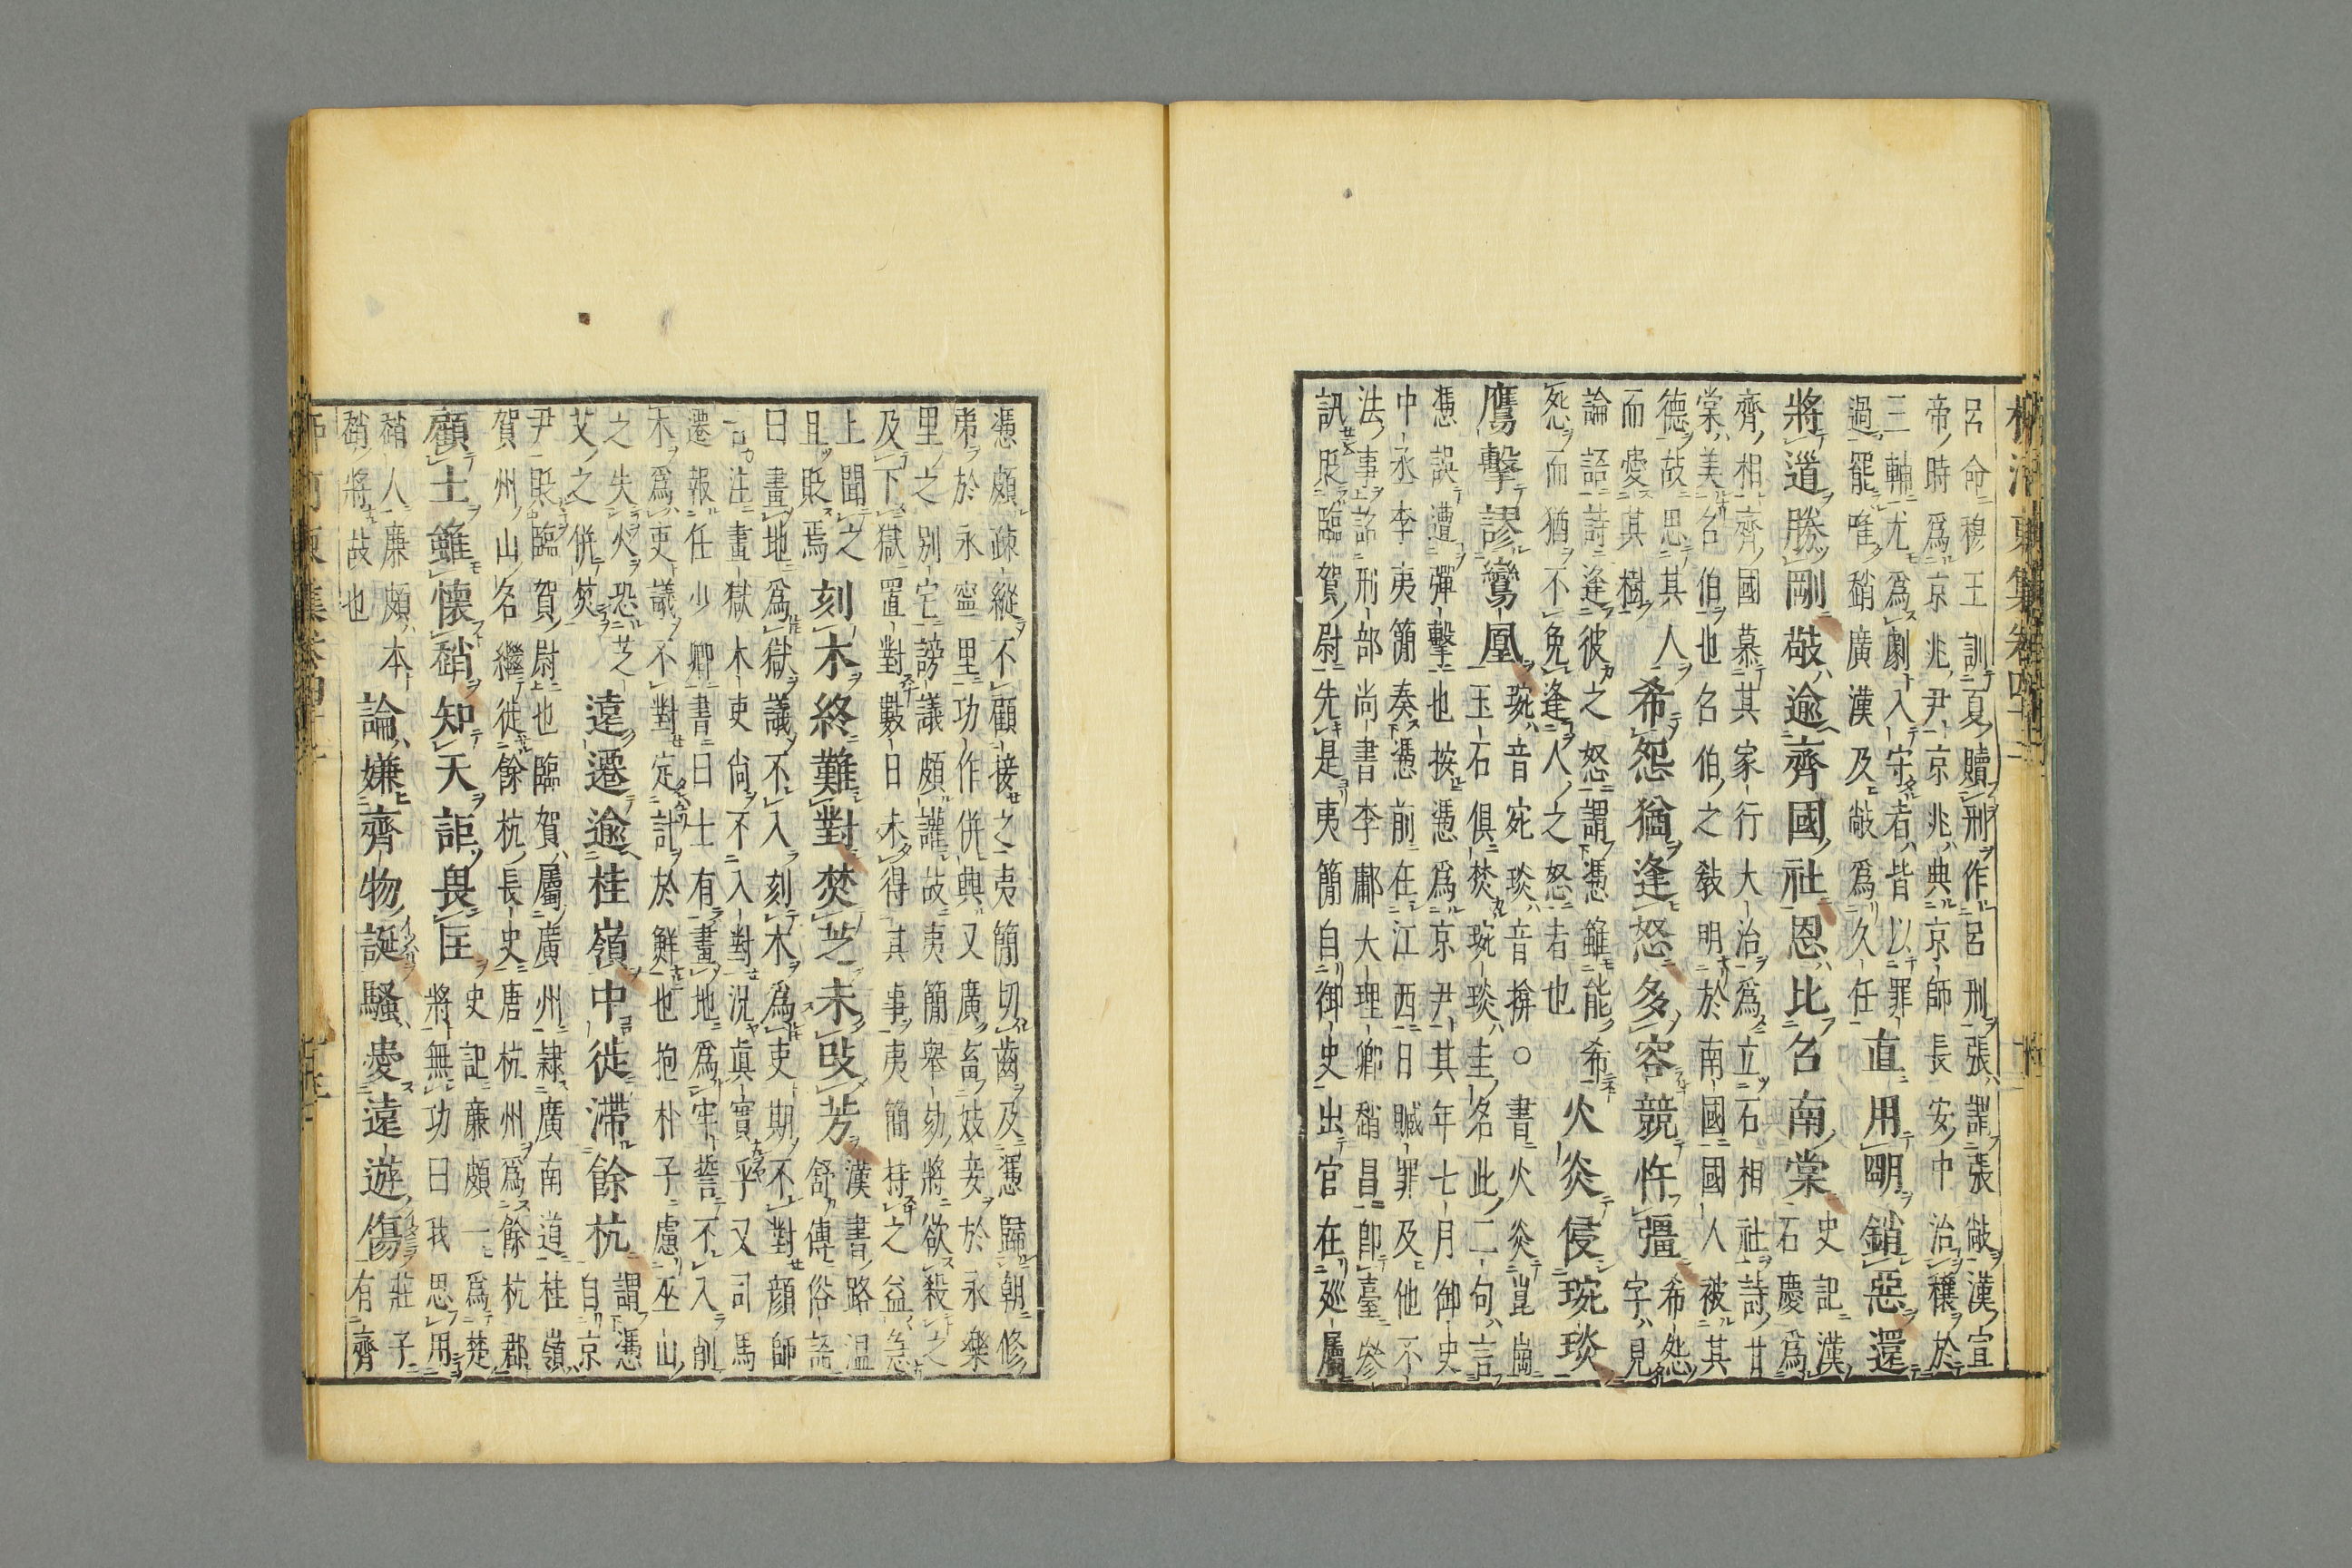 柳河東集卷四十二
呂命穆王訓夏贖刑作呂刑張謂張敞漢宣
帝時為京兆尹京兆典京師長安中治穰於
三輔尤為劇入守者皆以罪
過罷唯趙廣漢及敞為久任
直用明銷惡還
將道勝剛敬逾齊國社恩比召南棠
史記漢
石慶為
齊相齊國慕其家行大治為立石相社詩甘
棠美召伯也召伯之教明於南國國人被其
德故思其人
而愛其樹
希怨猶逢怒多容競忤彊
希怨
字見
論語詩逢彼之怒謂憑雖能希
怨而猶不免逢人之怒者也
火炎侵琬琰
鷹擊謬鸞凰
琬音宛琰音揜○書火炎崑崗
玉石俱焚琬琰圭名此二句言
憑誤遭彈擊也按憑為京尹其年七月御史
中丞李夷簡奏憑前在江西日贓罪及他不
法事詔刑部尚書李鄘大理卿趙昌即臺參
訊貶臨賀尉先是夷簡自御史出官在廵屬
憑頗疎縱不顧接之夷簡切齒及憑歸朝修
第於永寧里功作併興又廣畜妓妾於永樂
里之别宅謗議頗讙故夷簡舉劾將欲殺之
及下獄置對數日未得其事夷簡持之益急
上聞之
且貶焉
刻木終難對焚芝未改芳
漢書路温
舒傳俗語
曰畫地為獄議不入刻木為吏期不對顔師
古注畫獄木吏尚不入對況真實乎又司馬
遷報任少卿書曰士有畫地為牢誓不入削
木為吏議不對定計於鮮也抱朴子慮巫山
之失火恐芝
艾之併焚
遠遷逾桂嶺中徙滯餘杭
謂憑
自京
尹貶臨賀尉也臨賀屬廣州隷廣南道桂嶺
賀州山名繼徙餘杭長史唐杭州為餘杭郡
顧土雖懷趙知天詎畏匡
史記廉頗一為楚
將無功曰我思用
趙人廉頗本
趙將故也
論嫌齊物誕騷愛遠遊傷
莊子
有齊